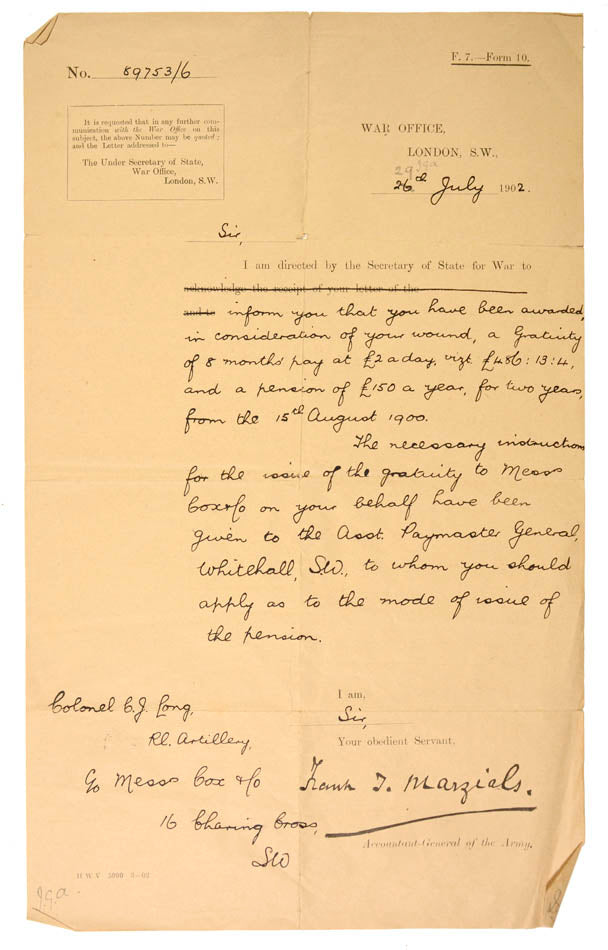 F. 7.—Form 10.
No. 89753/6
It is requested that in any further com-
munication with the War Office on this
subject, the above Number may be quoted;
and the Letter addressed to—
The Under Secretary of State,
War Office,
London, S.W.
WAR OFFICE,
LONDON, S.W.,
29 JGA
26th July 1902.
Sir,
I am directed by the Secretary of State for War to
acknowledge the receipt of your letter of the
and to inform you that you have been awarded,
in consideration of your wound, a Gratuity
of 8 months' pay at £2 a day, vizt. £486:13:4,
and a pension of £150 a year, for two years,
from the 15th August 1900.
The necessary instructions
for the issue of the gratuity to Messrs
Cox & Co on your behalf have been
given to the Asst. Paymaster General,
Whitehall, S.W., to whom you should
apply as to the mode of issue of
the pension.
I am,
Sir,
Your obedient Servant,
Frank T. Marzials.
Accountant-General of the Army.
Colonel C. J. Long,
Rl. Artillery,
c/o Messrs Cox & Co
16 Charing Cross,
SW
H W V 5000 3—02
J.G.A.